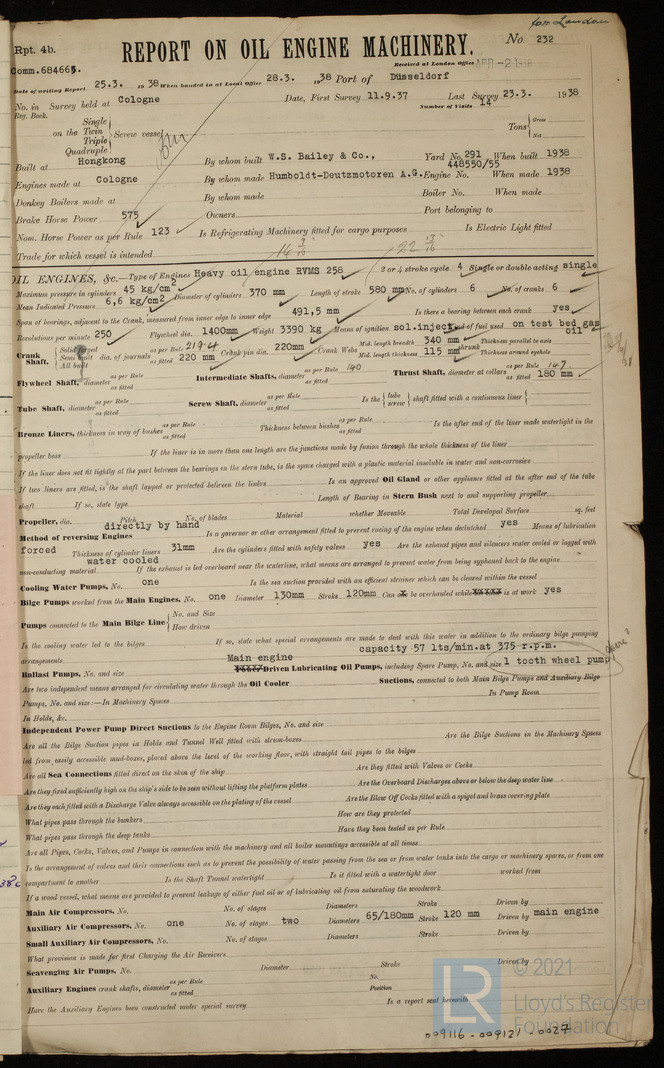 for London
Rpt. 4b.
REPORT ON OIL ENGINE MACHINERY.
No. 232
Comm.684665.
Received at London Office APR -2 1938
Date of writing Report 25.3. 1938 When handed in at Local Office 28.3. 1938 Port of Düsseldorf
No. in Survey held at Cologne Date, First Survey 11.9.37 Last Survey 23.3. 1938
Reg. Book. Number of Visits 14
Single
on the Twin Screw vessel
Triple
Quadruple
Tons Gross
Net
Built at Hongkong By whom built W.S. Bailey & Co., Yard No. 291 When built 1938
Engines made at Cologne By whom made Humboldt-Deutzmotoren A.G. Engine No. 448550/55 When made 1938
Donkey Boilers made at By whom made Boiler No. When made
Brake Horse Power 575 Owners Port belonging to
Nom. Horse Power as per Rule 123 Is Refrigerating Machinery fitted for cargo purposes Is Electric Light fitted
Trade for which vessel is intended
OIL ENGINES, &c.—Type of Engines Heavy oil engine RVMS 258 2 or 4 stroke cycle 4 Single or double acting single
Maximum pressure in cylinders 45 kg/cm2 Diameter of cylinders 370 mm Length of stroke 580 mm No. of cylinders 6 No. of cranks 6
Mean Indicated Pressure 6,6 kg/cm2
Span of bearings, adjacent to the Crank, measured from inner edge to inner edge 491,5 mm Is there a bearing between each crank yes
Revolutions per minute 250 Flywheel dia. 1400mm Weight 3390 kg Means of ignition sol.inject. Kind of fuel used on test bed gas oil
Crank Shaft, Solid forged Semi built All built dia. of journals as per Rule 219.4 as fitted 220 mm Crank pin dia. 220mm Crank Webs Mid. length breadth 340 mm Mid. length thickness 115 mm shrunk Thickness parallel to axis Thickness around eyehole
Flywheel Shaft, diameter as per Rule as fitted Intermediate Shafts, diameter as per Rule 140 as fitted Thrust Shaft, diameter at collars as per Rule 147 as fitted 180 mm
Tube Shaft, diameter as per Rule as fitted Screw Shaft, diameter as per Rule as fitted Is the tube screw shaft fitted with a continuous liner
Bronze Liners, thickness in way of bushes as per Rule as fitted Thickness between bushes as per Rule as fitted Is the after end of the liner made watertight in the
propeller boss If the liner is in more than one length are the junctions made by fusion through the whole thickness of the liner
If the liner does not fit tightly at the part between the bearings in the stern tube, is the space charged with a plastic material insoluble in water and non-corrosive
If two liners are fitted, is the shaft lapped or protected between the liners Is an approved Oil Gland or other appliance fitted at the after end of the tube
shaft If so, state type Length of Bearing in Stern Bush next to and supporting propeller
Propeller, dia. Pitch No. of blades Material whether Moveable Total Developed Surface sq. feet
Method of reversing Engines directly by hand Is a governor or other arrangement fitted to prevent racing of the engine when declutched yes Means of lubrication
forced Thickness of cylinder liners 31mm Are the cylinders fitted with safety valves yes Are the exhaust pipes and silencers water cooled or lagged with
non-conducting material water cooled If the exhaust is led overboard near the waterline, what means are arranged to prevent water from being syphoned back to the engine
Cooling Water Pumps, No. one Is the sea suction provided with an efficient strainer which can be cleared within the vessel
Bilge Pumps worked from the Main Engines, No. one Diameter 130mm Stroke 120mm Can be overhauled while is at work yes
Pumps connected to the Main Bilge Line No. and Size
How driven
Is the cooling water led to the bilges If so, state what special arrangements are made to deal with this water in addition to the ordinary bilge pumping
arrangements capacity 57 lts/min.at 375 r.p.m.
Ballast Pumps, No. and size Main engine Driven Lubricating Oil Pumps, including Spare Pump, No. and size 1 tooth wheel pump
Are two independent means arranged for circulating water through the Oil Cooler Suctions, connected to both Main Bilge Pumps and Auxiliary Bilge
Pumps, No. and size:—In Machinery Spaces In Pump Room
In Holds, &c.
Independent Power Pump Direct Suctions to the Engine Room Bilges, No. and size
Are all the Bilge Suction pipes in Holds and Tunnel Well fitted with strum-boxes Are the Bilge Suctions in the Machinery Spaces
led from easily accessible mud-boxes, placed above the level of the working floor, with straight tail pipes to the bilges
Are all Sea Connections fitted direct on the skin of the ship Are they fitted with Valves or Cocks
Are they fixed sufficiently high on the ship's side to be seen without lifting the platform plates Are the Overboard Discharges above or below the deep water line
Are they each fitted with a Discharge Valve always accessible on the plating of the vessel Are the Blow Off Cocks fitted with a spigot and brass covering plate
What pipes pass through the bunkers How are they protected
What pipes pass through the deep tanks Have they been tested as per Rule
Are all Pipes, Cocks, Valves, and Pumps in connection with the machinery and all boiler mountings accessible at all times
Is the arrangement of valves and their connections such as to prevent the possibility of water passing from the sea or from water tanks into the cargo or machinery spaces, or from one
compartment to another Is the Shaft Tunnel watertight Is it fitted with a watertight door worked from
If a wood vessel, what means are provided to prevent leakage of either fuel oil or of lubricating oil from saturating the woodwork
Main Air Compressors, No. No. of stages Diameters Stroke Driven by
Auxiliary Air Compressors, No. one No. of stages two Diameters 65/180mm Stroke 120 mm Driven by main engine
Small Auxiliary Air Compressors, No. No. of stages Diameters Stroke Driven by
What provision is made for first Charging the Air Receivers
Scavenging Air Pumps, No. Diameter Stroke Driven by
Auxiliary Engines crank shafts, diameter as per Rule as fitted No. Position
Have the Auxiliary Engines been constructed under special survey Is a report sent herewith
LR © 2021
Lloyd's Register
Foundation
009116-009121-0027